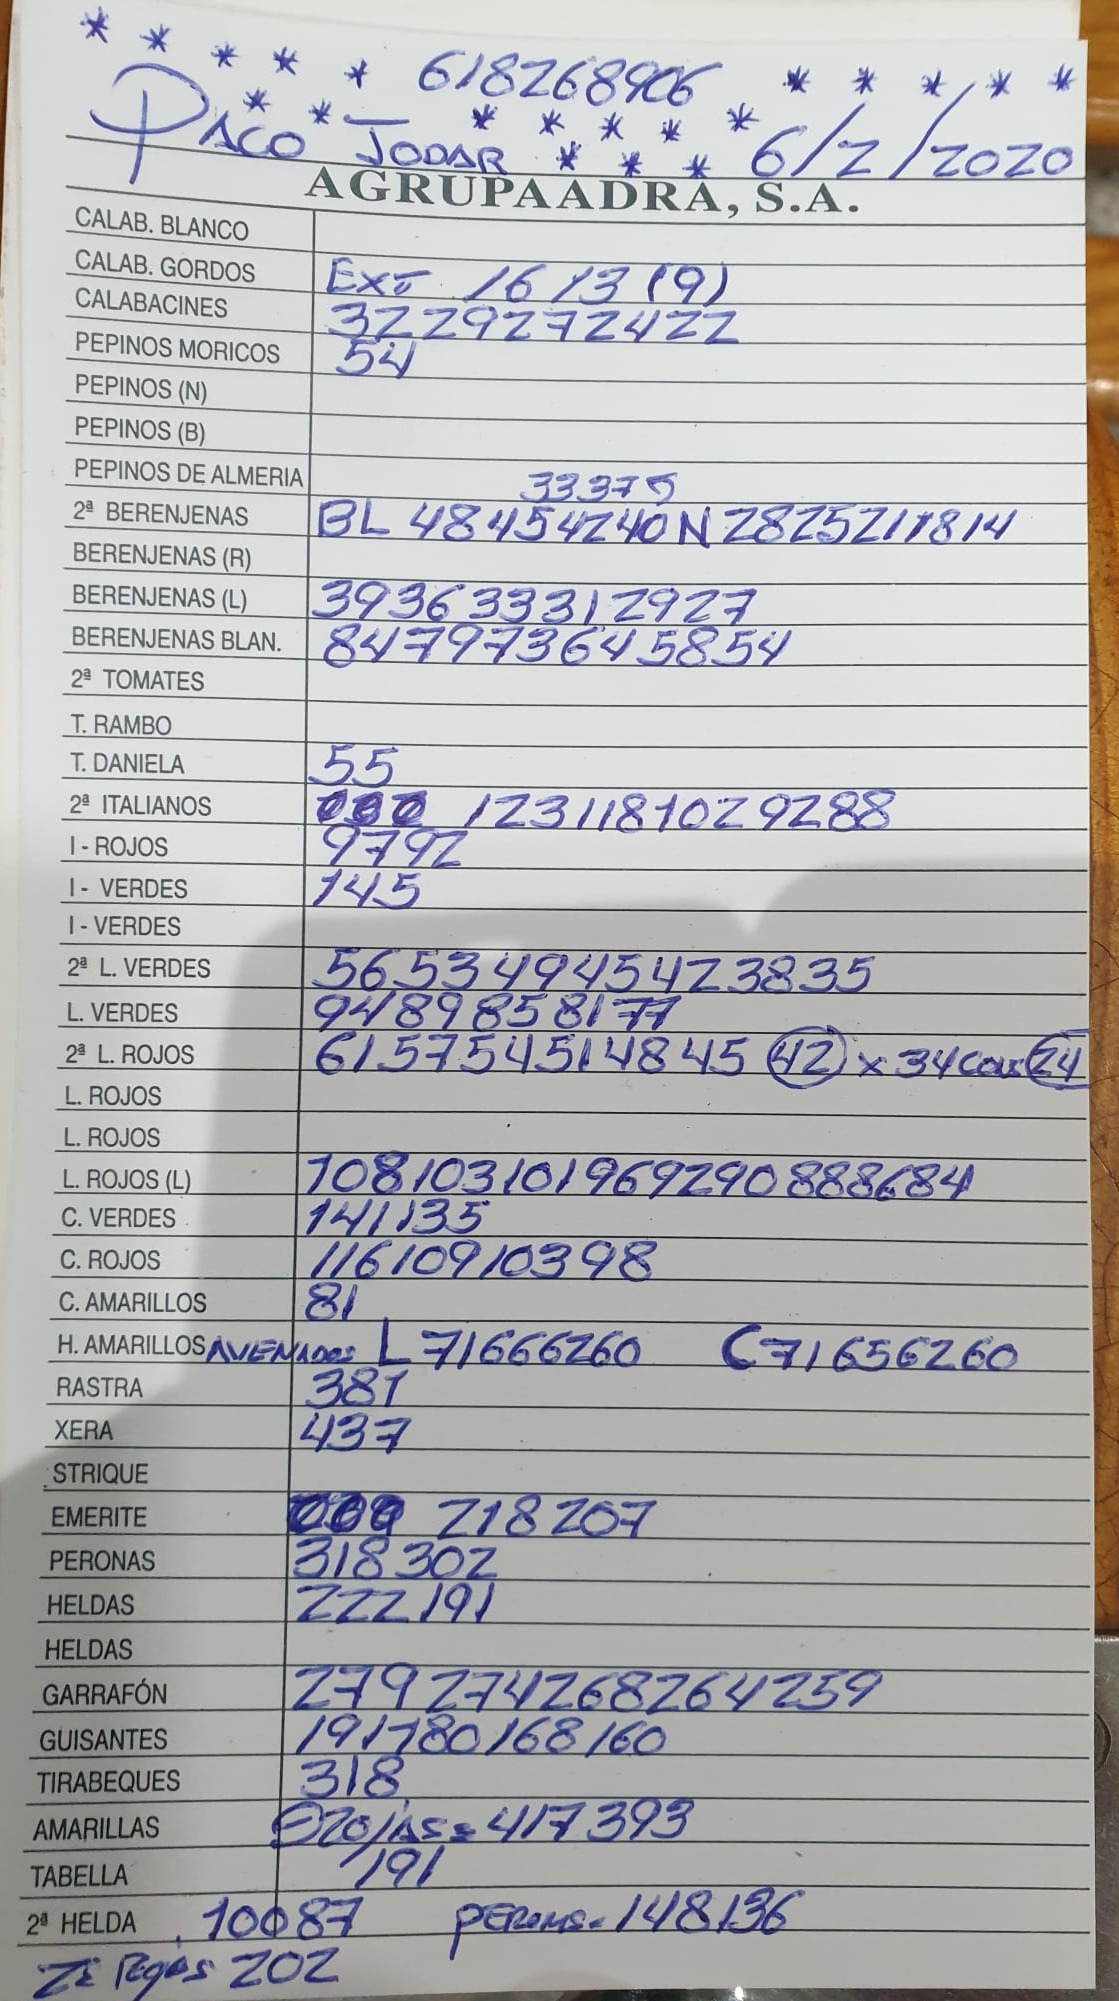 618268906
PACO JODAR 6/2/2020
AGRUPAADRA, S.A.
CALAB. BLANCO
CALAB. GORDOS EXT 16 13 (9)
CALABACINES 3229272422
PEPINOS MORICOS 54
PEPINOS (N)
PEPINOS (B)
PEPINOS DE ALMERIA 33375
2ª BERENJENAS BL 48454240 N 2825211814
BERENJENAS (R)
BERENJENAS (L) 393633312927
BERENJENAS BLAN. 84797364 5854
2ª TOMATES
T. RAMBO
T. DANIELA 55
2ª ITALIANOS 1231181029288
I - ROJOS 9792
I - VERDES 145
I - VERDES
2ª L. VERDES 56534945423835
L. VERDES 9489858177
2ª L. ROJOS 61575451484542 x 34 24
L. ROJOS
L. ROJOS
L. ROJOS (L) 108103101969290888684
C. VERDES 141135
C. ROJOS 11610910398
C. AMARILLOS 81
H. AMARILLOS AVENADOS L 71666260 C 71656260
RASTRA 381
XERA 437
STRIQUE
EMERITE 218207
PERONAS 318302
HELDAS 222191
HELDAS
GARRAFÓN 279274268264259
GUISANTES 191780168160
TIRABEQUES 318
AMARILLAS 417393
TABELLA 191
2ª HELDA 10087 148136
202